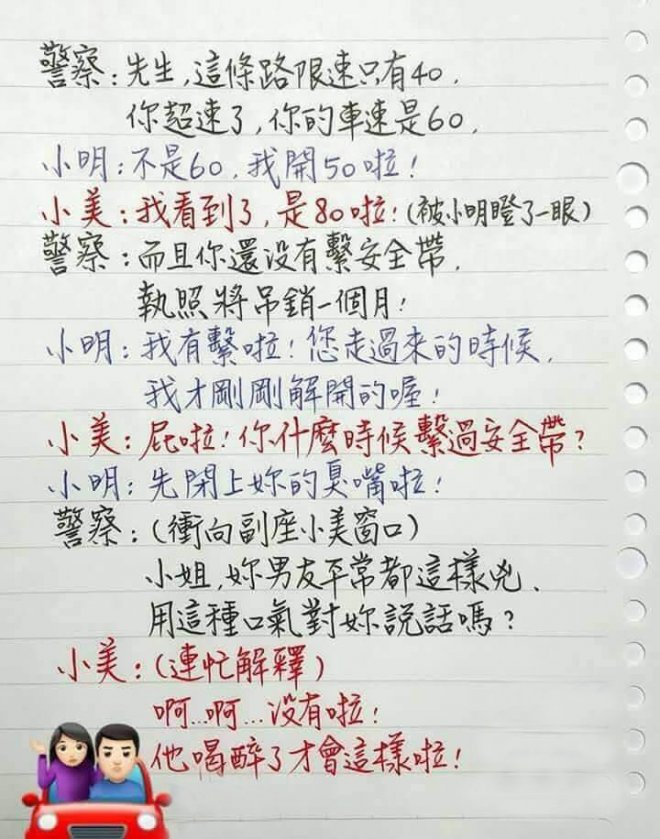 警察：先生，這條路限速只有40，
你超速了，你的車速是60，
小明：不是60，我開50啦！
小美：我看到了，是80啦！（被小明瞪了一眼）
警察：而且你還没有繫安全帶，
執照將吊銷一個月！
小明：我有繫啦！您走過來的時候，
我才剛剛解開的喔！
小美：屁啦！你什麼時候繫過安全帶？
小明：先閉上妳的臭嘴啦！
警察：（衝向副座小美窗口）
小姐，妳男友平常都這樣兇、
用這種口氣對妳說話嗎？
小美：（連忙解釋）
啊…啊…没有啦！
他喝醉了才會這樣啦！